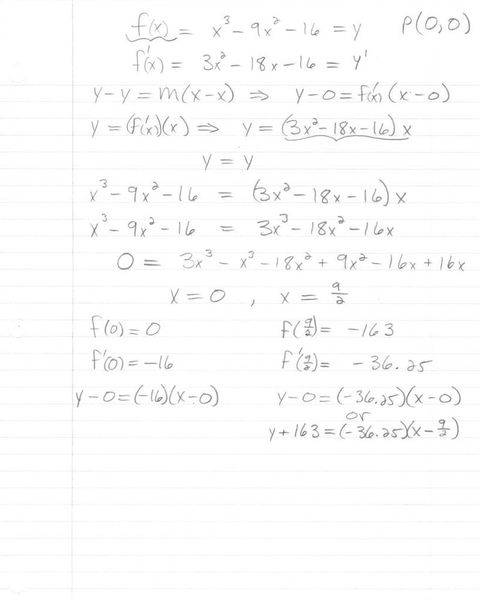 f(x) = x³ - 9x² - 16 = y P(0,0)
f'(x) = 3x² - 18x - 16 = y'
y - y = m(x - x) ⇒ y - 0 = f'(x)(x - 0)
y = (f'(x))(x) ⇒ y = (3x² - 18x - 16)x
y = y
x³ - 9x² - 16 = (3x² - 18x - 16)x
x³ - 9x² - 16 = 3x³ - 18x² - 16x
0 = 3x³ - x³ - 18x² + 9x² - 16x + 16x
x = 0 , x = 9/2
f(0) = 0 f(9/2) = -163
f'(0) = -16 f'(9/2) = -36.25
y - 0 = (-16)(x - 0) y - 0 = (-36.25)(x - 0)
or
y + 163 = (-36.25)(x - 9/2)